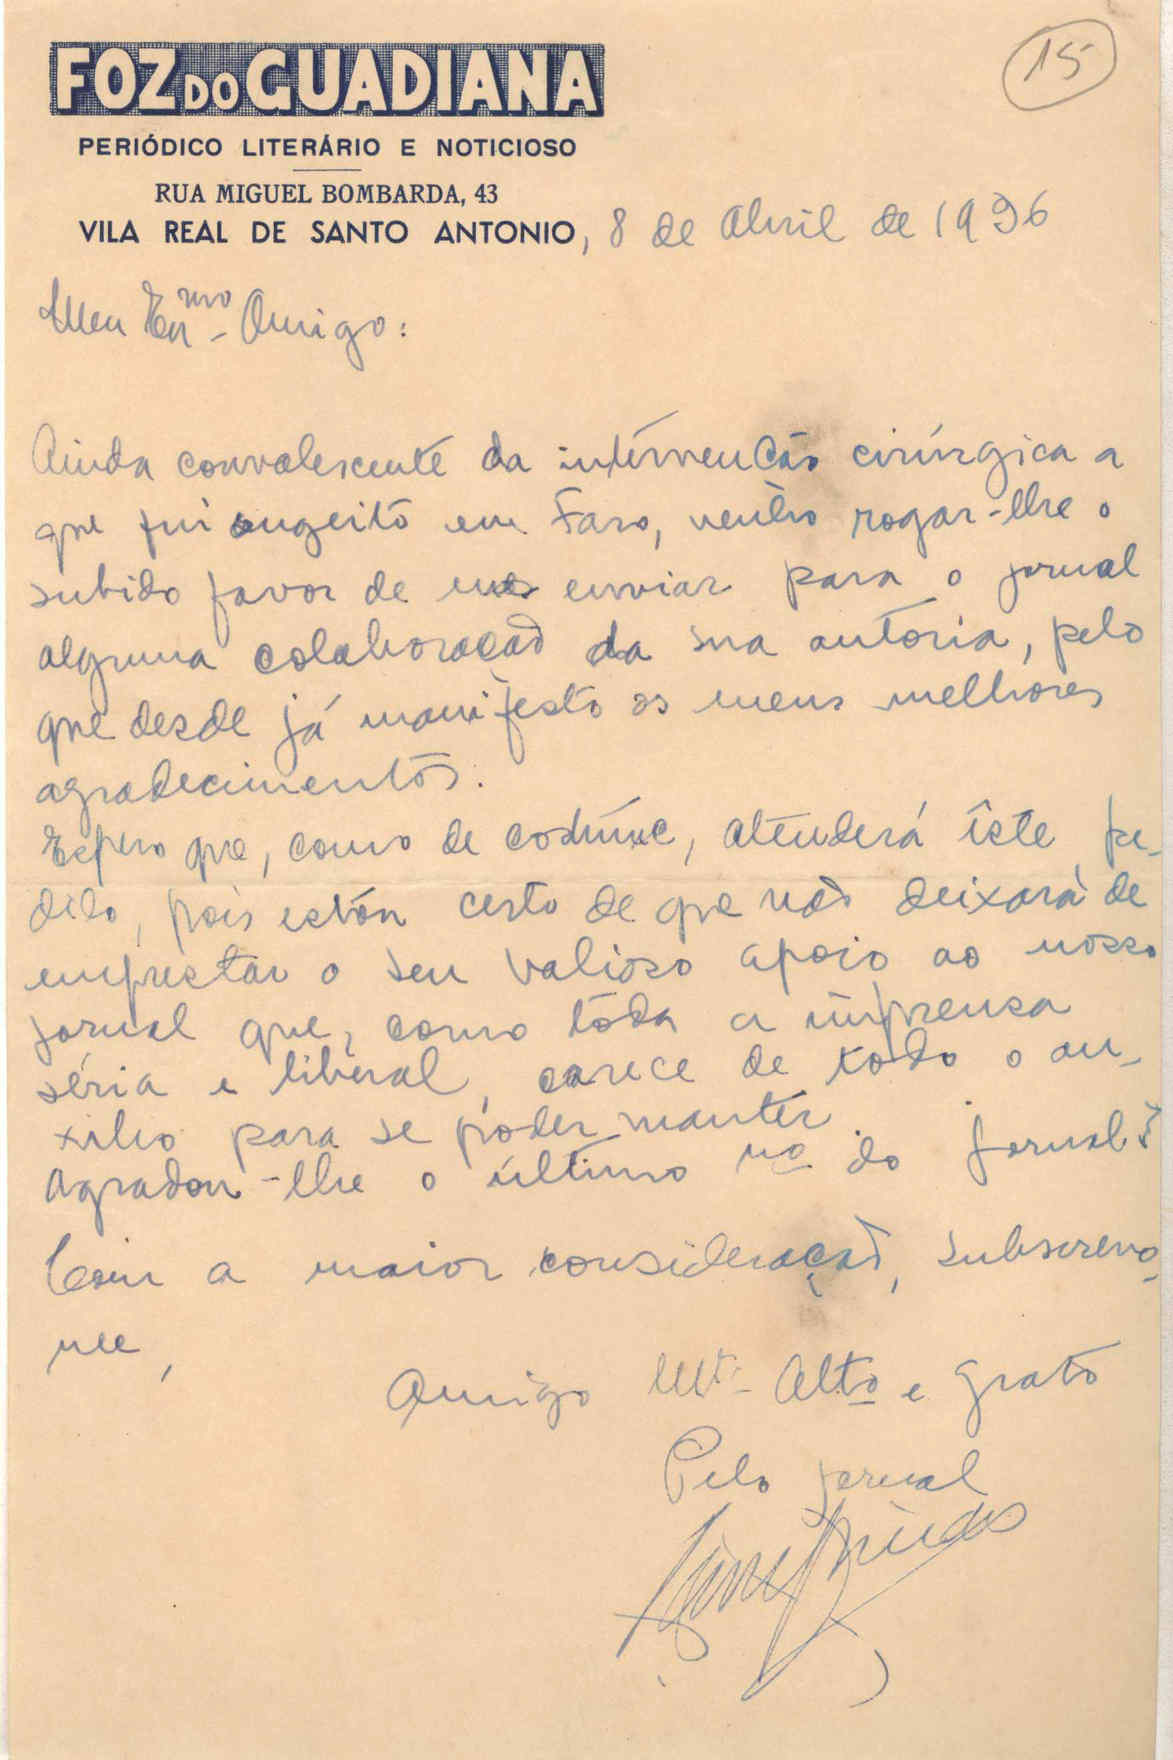 15
FOZ DO GUADIANA
PERIÓDICO LITERÁRIO E NOTICIOSO
RUA MIGUEL BOMBARDA, 43
VILA REAL DE SANTO ANTONIO, 8 de Abril de 1936
Meu Exmo Amigo:
Ainda convalescente da intervenção cirúrgica a
que fui sugeito em Faro, venho rogar-lhe o
subido favor de nos enviar para o jornal
alguma colaboração da sua autoria, pelo
que desde já manifesto os meus melhores
agradecimentos.
Espero que, como de costume, atenderá êste pe-
dido, pois estou certo de que não deixará de
emprestar o seu valioso apoio ao nosso
jornal que, como tôda a imprensa
séria e liberal, carece de todo o au-
xilio para se poder manter.
Agradou-lhe o último nº do jornal?
Com a maior consideração, subscrevo-
me,
Amigo Mtº Altº e grato
Pelo jornal